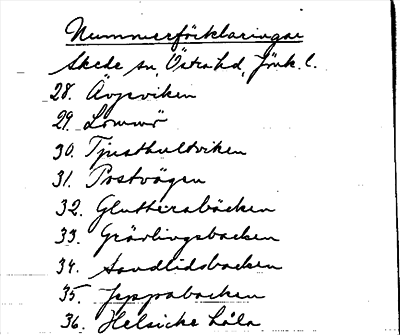 Nummerförklaringar
Skede sn, Östra hd, Jönk. l.
28. Äspviken
29. Lommö
30. Tjusthultviken
31. Postvägen
32. Glutterabäcken
33. Grävlingsbacken
34. Sandlidsbacken
35. Jeppabacken
36. Helsicke håla